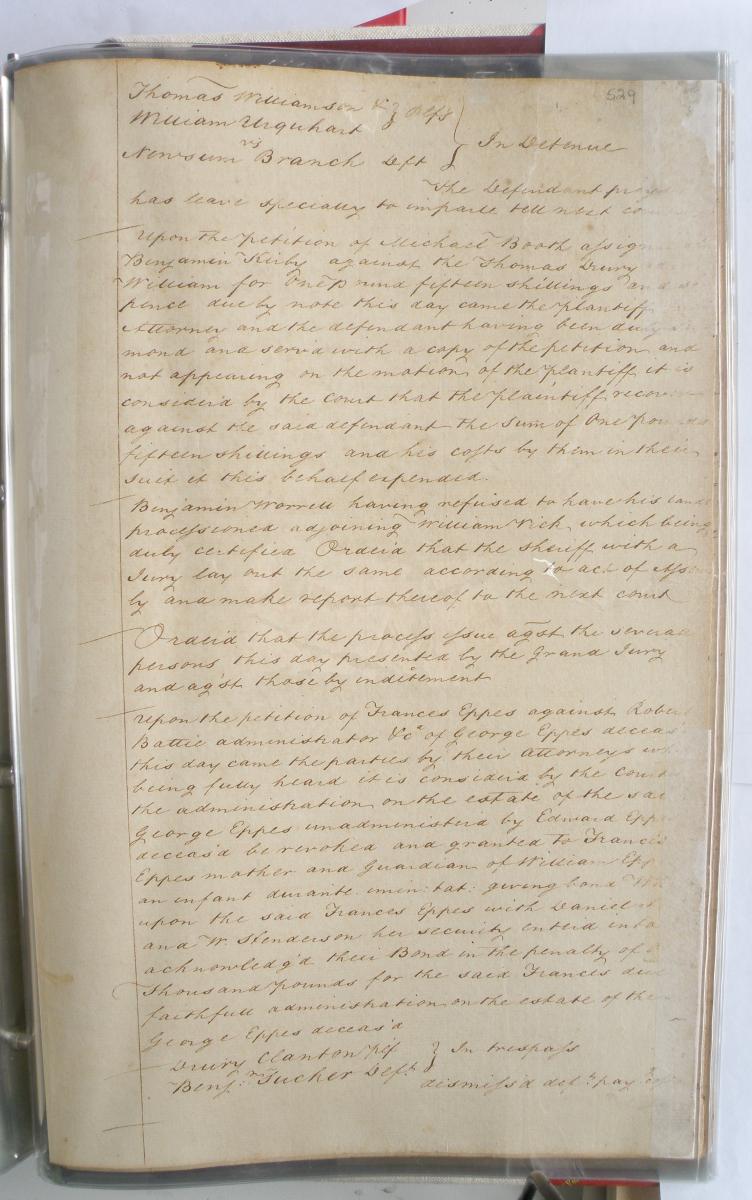 529
Thomas Williamson & } Plfs
William Urquhart
vs } In Detinue
Newsum Branch Deft
The Defendant
has leave specially to imparle till next
Upon the petition of Michael Booth
Benjamin Kirby against the Thomas Drury
William for One Pound fifteen shillings and
pence due by note this day came the plantiff
Attorney and the defendant having been duly
mond and serv'd with a copy of the petition and
not appearing on the motion of the plantiff it is
consider'd by the Court that the plaintiff
against the said defendant the sum of One
fifteen shillings and his costs by them in their
suit it this behalf expended.
Benjamin Worrell having refused to have his land
processioned adjoining William Vick which being
duly certified Order'd that the sheriff with a
Jury lay out the same according to act of
by and make report thereof to the next court
Order'd that the process issue agst the several
persons this day presented by the Grand Jury
and ag'st those by inditement
Upon the petition of Frances Eppes against
Battie administrator &c.a of George Eppes
this day came the parties by their attorneys
being fully heard it is consider'd by the Court
the administration on the estate of the
George Eppes unadministerd by Edward
deceas'd be revoked and granted to Frances
Eppes mother and Guardian of William
an infant durante giving bond
upon the said Frances Eppes with Daniel
and W. Henderson her security enter'd into
acknowledg'd their Bond in the penalty of
Thousand pounds for the said Frances
faithfull administration on the estate of the
George Eppes deceas'd
Drury Clanton Plf } In trespass
Benj.n Tucker Deft.
dismiss'd def.t pay